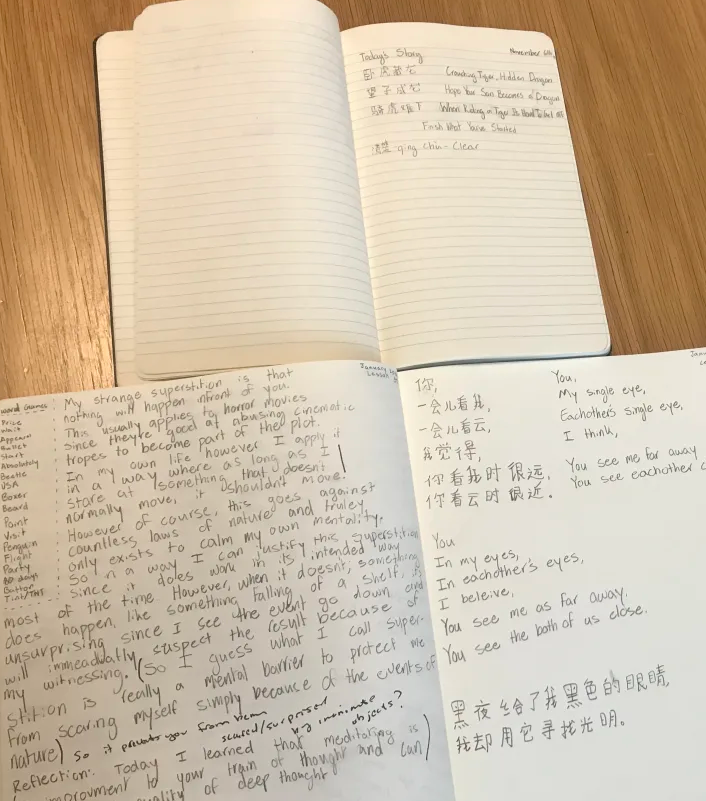 Today's Story
November 6th,
卧虎藏龙 Crouching Tiger, Hidden Dragon
望子成龙 Hope Your Son Becomes a Dragon
骑虎难下 When Riding a Tiger Its Hard To Get Off
Finish What You've Started
清楚 qing chu - Clear
January
Lesson
Word Games:
Price
Wait
Appears
Start
Absolutely
Beetle
USA
Boxer
Beard
Point
Visit
Penguin
Flight
Party
Button
My strange superstition is that
nothing will happen infront of you.
This usually applies to horror movies
since they're good at abusing cinematic
tropes to become part of the plot.
In my own life however I apply it
in a way where as long as I
stare at something that doesn't
normally move, it shouldn't move!
However of course, this goes against
countless laws of nature and truley
only exists to calm my own mentality.
So in a way I can justify this superstition
since it does work in its intended way
most of the time. However, when it doesn't, something
does happen, like something falling of a shelf, it's
unsurprising since I see the event go down and
will immeadiatly suspect the result because of
my witnessing. (So I guess what I call super-
stition is really a mental barrier to protect me
from scaring myself simply because of the events of
nature) so it prevents you from being
scared/surprised
by inanimate
objects?
Reflection: Today I learned that meditating is
improvment to your train of thought and can
quality of deep thought
你,
一会儿看我,
一会儿看云,
我觉得,
你看我时很远,
你看云时很近.
You,
My single eye,
Eachother's single eye,
I think,
You see me far away
You see eachother
You
In my eyes,
In eachother's eyes,
I beleive,
You see me as far away.
You see the both of us close.
黑夜给了我黑色的眼睛,
我却用它寻找光明。